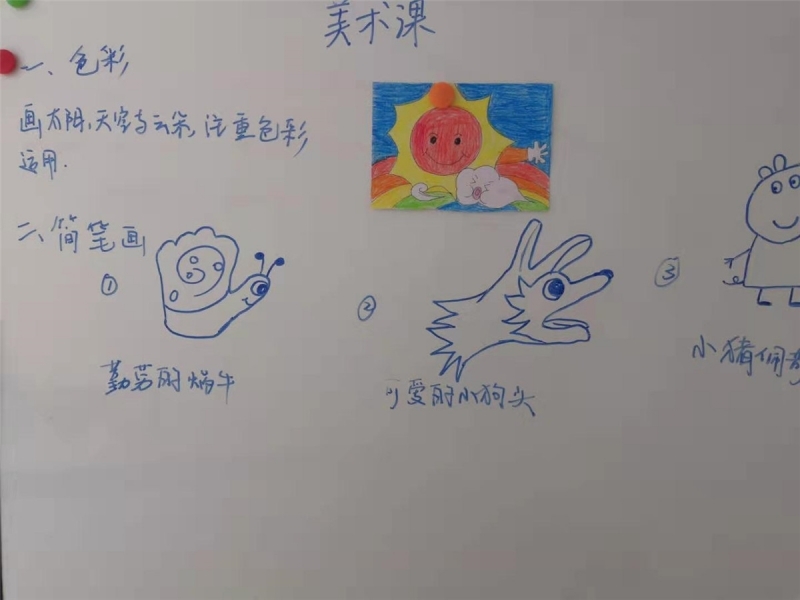 美术课
一、色彩
画太阳,天空与云朵,注重色彩
运用.
二、简笔画
①
②
③
勤劳的蜗牛
可爱的小狗头
小猪佩奇